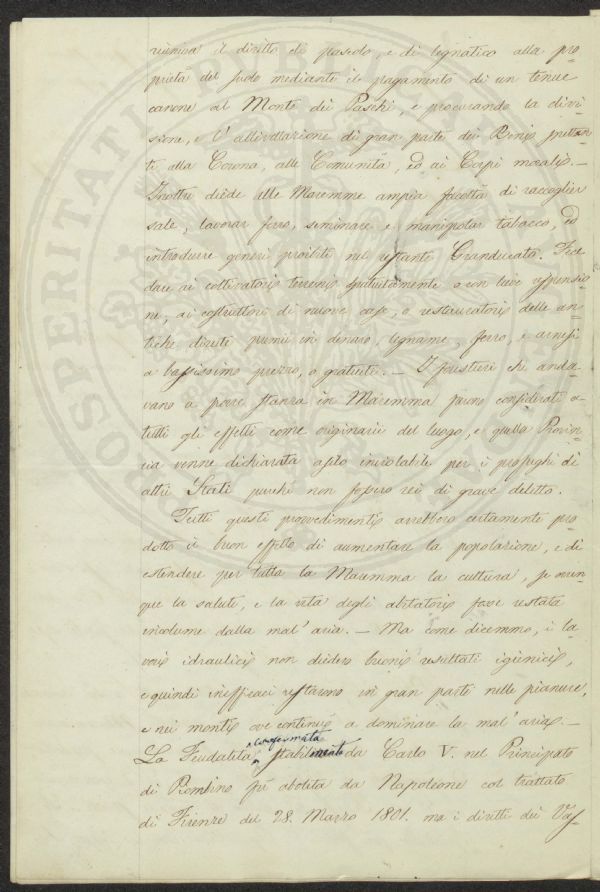 riunirsi il diritto di pascolo, e di legnatico alla pro=
prietà del suolo mediante il pagamento di un tenue
canone al Monte dei Paschi, e procurando la divi=
sione, e l'allivellazione di gran parte dei Beni spettan=
ti alla Corona, alle Comunità, ed ai Corpi morali. –
Inoltre diede alle Maremme ampia facoltà di raccoglier
sale, lavorar ferro, seminare e manipolar tabacco, ed
introdurre generi proibiti nel restante Granducato. Fece
dare ai coltivatori terreni gratuitamente o con lieve
ne, ai costruttori di nuove case, o restauratori delle an=
tiche diresti premi in denaro, legname, ferro, e arnesi
a bassissimo prezzo, o gratuiti. – I forestieri che anda=
vano a porre stanza in Maremma furono considerati a
tutti gli effetti come originarii del luogo, e quella Provin=
cia venne dichiarata asilo inviolabile per i profughi di
altri Stati purchè non fossero rei di grave delitto.
Tutti questi provvedimenti avrebbero certamente pro=
dotto il buon effetto di aumentare la popolazione, e di
estendere per tutta la Maremma la cultura, se ovun=
que la salute, e la vita degli abitatori fosse restata
incolume dalla mal'aria. – Ma come dicemmo, i la=
vori idraulici non diedero buoni resultati igienici,
e quindi inefficaci restarono in gran parte nelle pianure,
e nei monti ove continuò a dominare la mal'aria. –
confermata
La Feudalità stabilmente da Carlo V. nel Principato
di Piombino fù abolita da Napoleone col trattato
di Firenze del 28. Marzo 1801. ma i diritti dei Vas=
PROSPERITATI PUBL